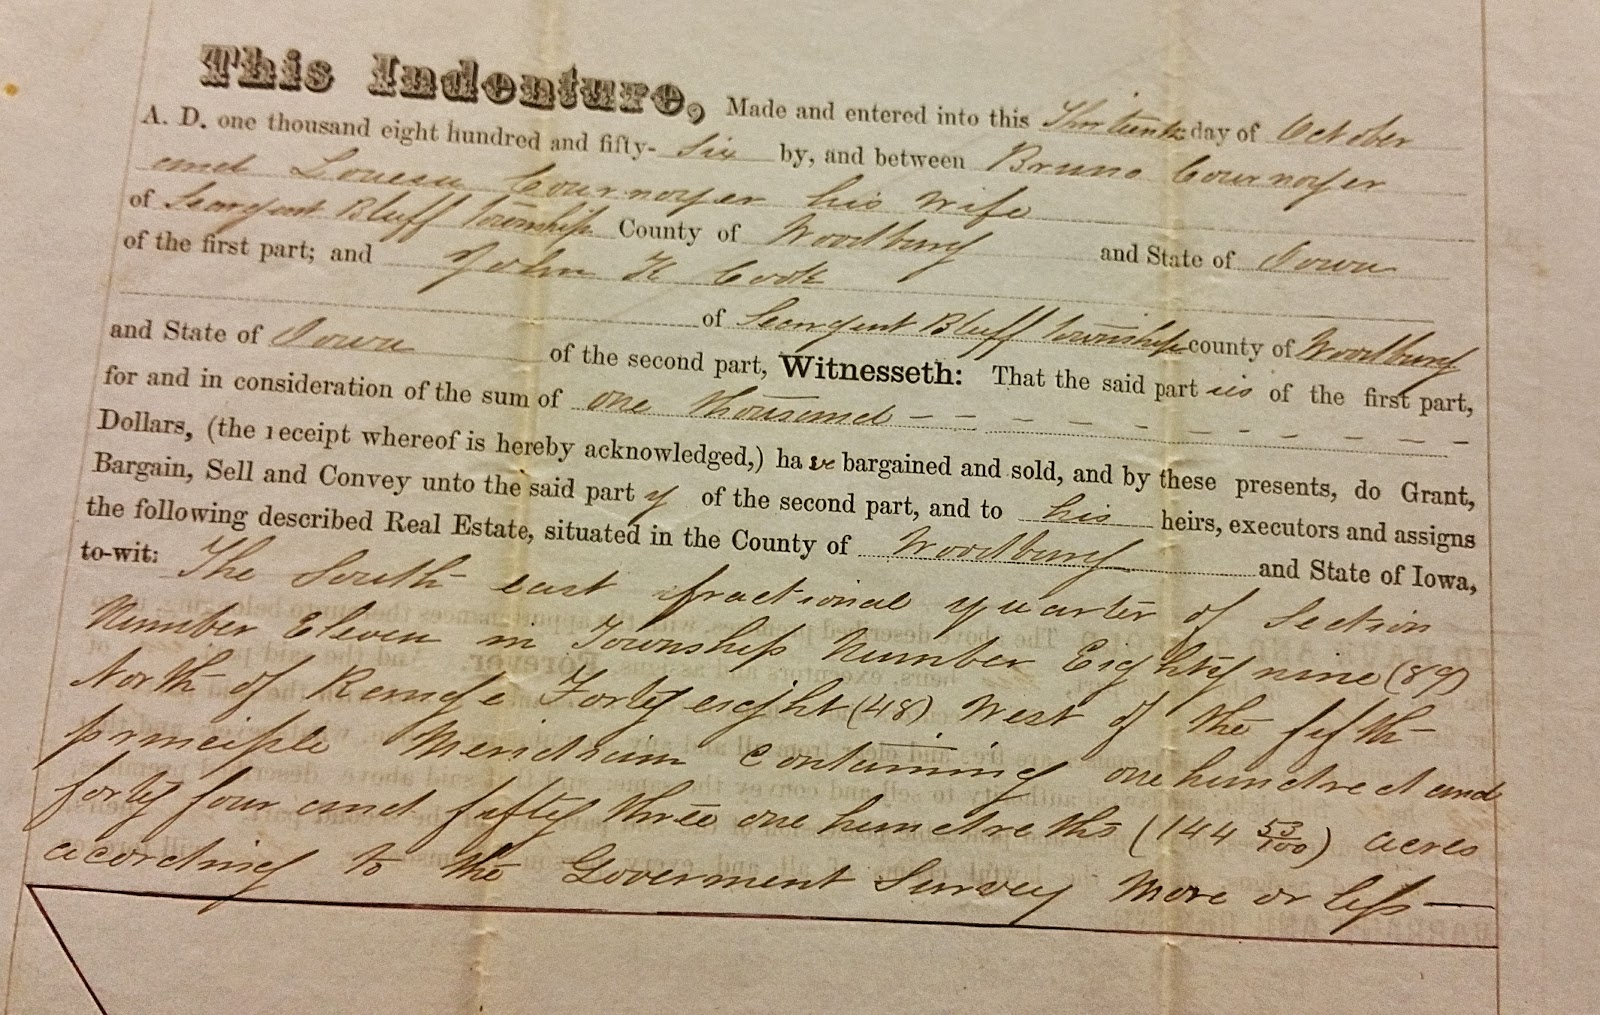 This Indenture, Made and entered into this Thirteenth day of October
A. D. one thousand eight hundred and fifty- six by, and between Bruno Cournoyer
and Louesa Cournoyer his wife
of Seargent Bluff Township County of Woodbury and State of Iowa
of the first part; and John K Cook
of Seargent Bluff township county of Woodbury
and State of Iowa of the second part, Witnesseth: That the said part ies of the first part,
for and in consideration of the sum of one thousand – – – – – – – – – – – –
Dollars, (the receipt whereof is hereby acknowledged,) ha ve bargained and sold, and by these presents, do Grant,
Bargain, Sell and Convey unto the said part y of the second part, and to his heirs, executors and assigns
the following described Real Estate, situated in the County of Woodbury and State of Iowa,
to-wit: The South east fractional quarter of Section
Number Eleven in Township Number Eighty nine (89)
North of Range Forty eight (48) West of the fifth
principle Meridian Containing one hundred and
forty four and fifty three one hundreths (144 53/100) acres
acording to the Goverment Survey More or less —